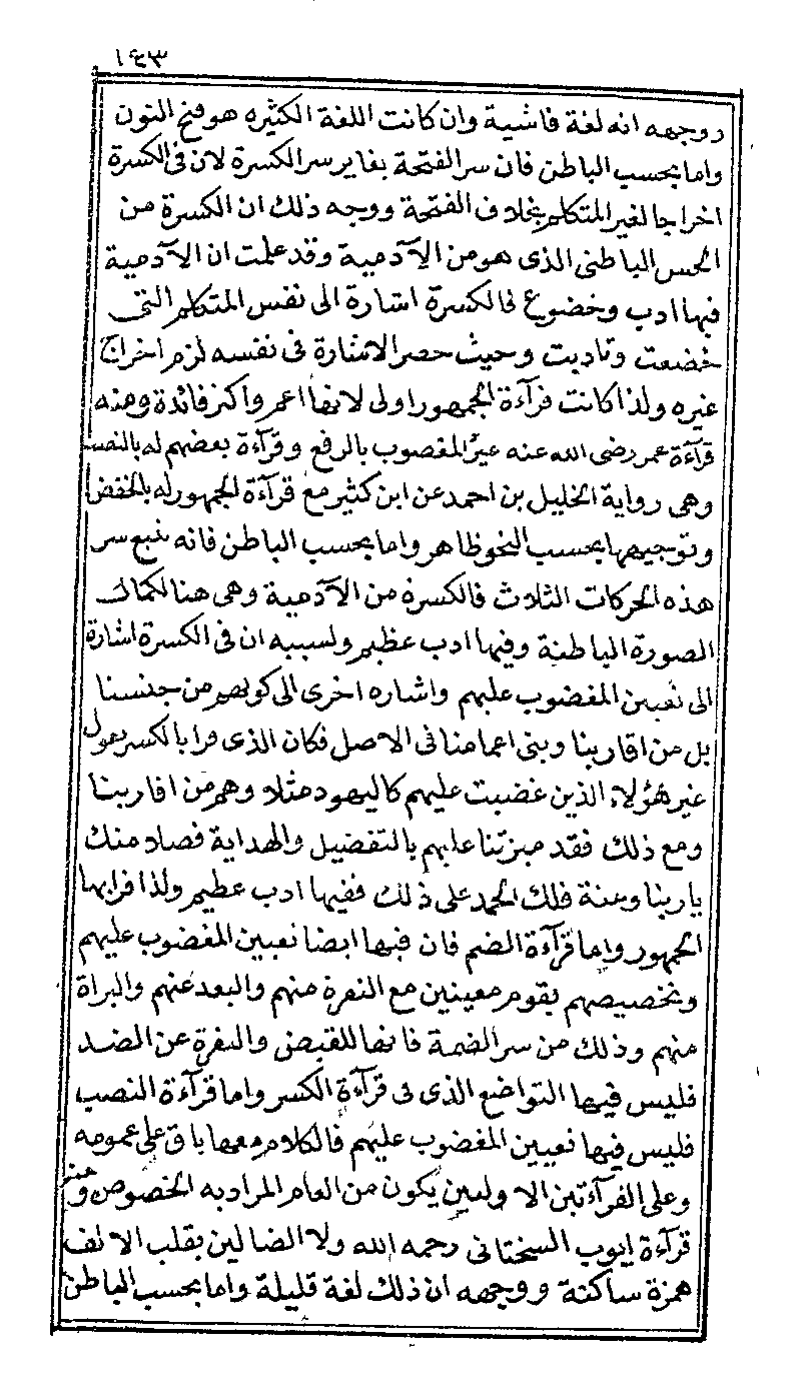 ١٤٣
ووجهه انه لغة فاشية وان كانت اللغة الكثيره هو فتح النون
واما بحسب الباطن فان سر الفتحة يغاير سر الكسرة لان فى الكسرة
اخراجا لغير المتكلم بخلاف الفتحة ووجه ذلك ان الكسرة من
الحس الباطنى الذى هو من الآدمية وقد علمت ان الآدمية
فيها ادب وخضوع فالكسرة اشارة الى نفس المتكلم التى
خضعت وتادبت وحيث حصر الاشارة فى نفسه لزم اخراج
غيره ولذا كانت قرآءة الجمهور اولى لانها اعم واكثر فائدة ومنه
قرآءة عمر رضى الله عنه غير المغضوب بالرفع وقرآءة بعضهم له بالنصب
وهى رواية الخليل بن احمد عن ابن كثير مع قرآءة الجمهور له بالخفض
وتوجيهها بحسب النحو ظاهر واما بحسب الباطن فانه يتبع سر
هذه الحركات الثلاث فالكسرة من الآدمية وهى هنا لكمال
الصورة الباطنة وفيها ادب عظيم ولسببه ان فى الكسرة اشارة
الى تعيين المغضوب عليهم واشاره اخرى الى كونهم من جنسنا
بل من اقاربنا وبنى اعمامنا فى الاصل فكان الذى قرا بالكسر يقول
غير هؤلاء الذين غضبت عليهم كاليهود مثلا وهم من اقاربنا
ومع ذلك فقد ميزتنا عليهم بالتفضيل والهداية فصاد منك
يا ربنا ومنة فلك الحمد على ذلك ففيها ادب عظيم ولذا قرا بها
الجمهور واما قرآءة الضم فان فيها ايضا تعيين المغضوب عليهم
وتخصيصهم بقوم معينين مع النفرة منهم والبعد عنهم والبراة
منهم وذلك من سر الضمة فانها للقبض والنفرة عن الضد
فليس فيها التواضع الذى فى قرآءة الكسر واما قرآءة النصب
فليس فيها تعيين المغضوب عليهم فالكلام معها باق على عمومه
وعلى القرآءتين الاولين يكون من العام المراد به الخصوص ومنه
قرآءة ايوب السختانى رحمه الله ولا الضالين بقلب الالف
همزة ساكنة ووجهه ان ذلك لغة قليلة واما بحسب الباطن